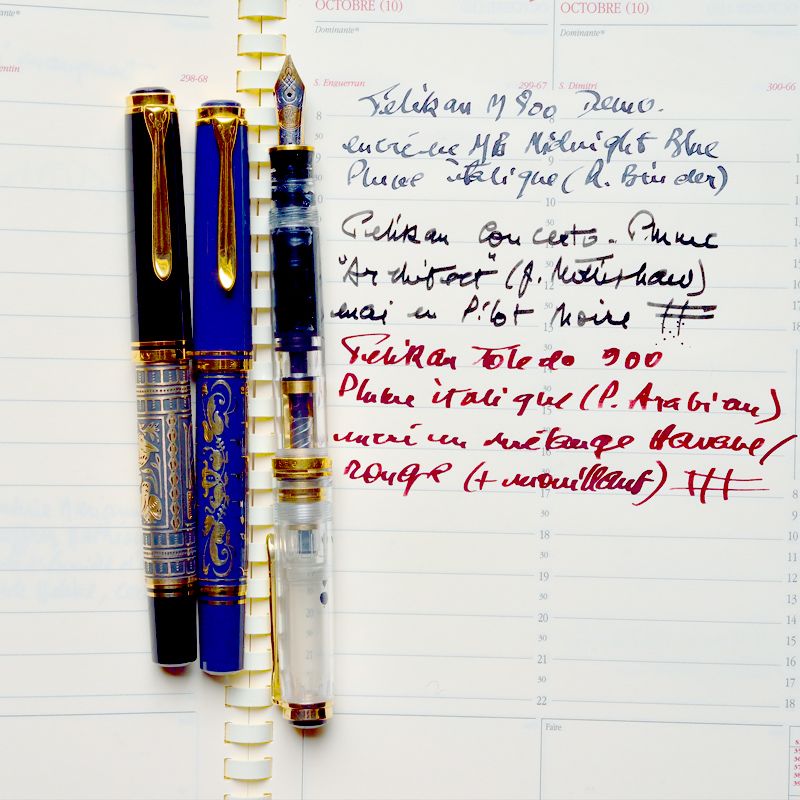 OCTOBRE (10)
OCTOBRE (10)
Dominante*
Dominante*
Dominante*
298-68
S. Enguerran
299-67
S. Dimitri
300-66
Pelikan M 900 Demo.
encré en MB Midnight Blue
Plume italique (R. Binder)
Pelikan Concerto. Plume
"Architect" (J. Mottishaw)
encré en Pilot Noire
Pelikan Toledo 900
Plume italique (P. Arabian)
encré en mélange Havane/
rouge (+ mouillant)
8
9
10
18
19
20
21
22
8
9
10
11
12
13
14
15
16
17
18
Faire